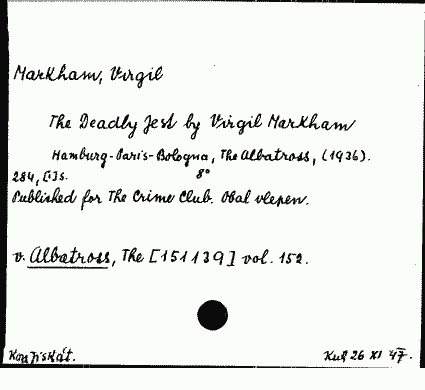 Markham, Virgil
The Deadly Jest by Virgil Markham
Hamburg-Paris-Bologna, The Albatross, (1936).
284, [1]s. 8°
Published for The Crime Club. Obal vlepen.
v. Albatross, The [151139] vol. 152.
Konfiskát. Kub 26 XI 47.